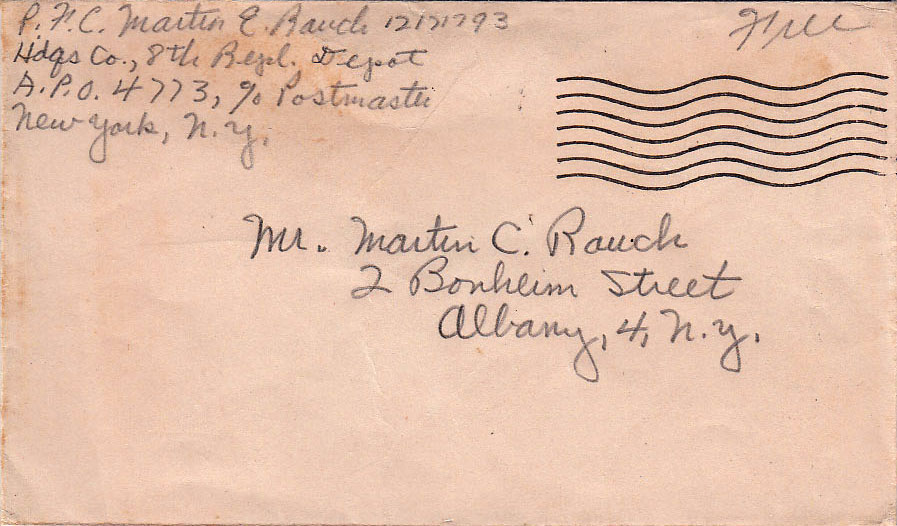 P.F.C. Martin E. Rauch 12121793
Free
Hdqs Co., 8th Repl. Depot
A.P.O. 4773, % Postmaster
New York, N.Y.
Mr. Martin C. Rauch
2 Bonheim Street
Albany, 4, N.Y.